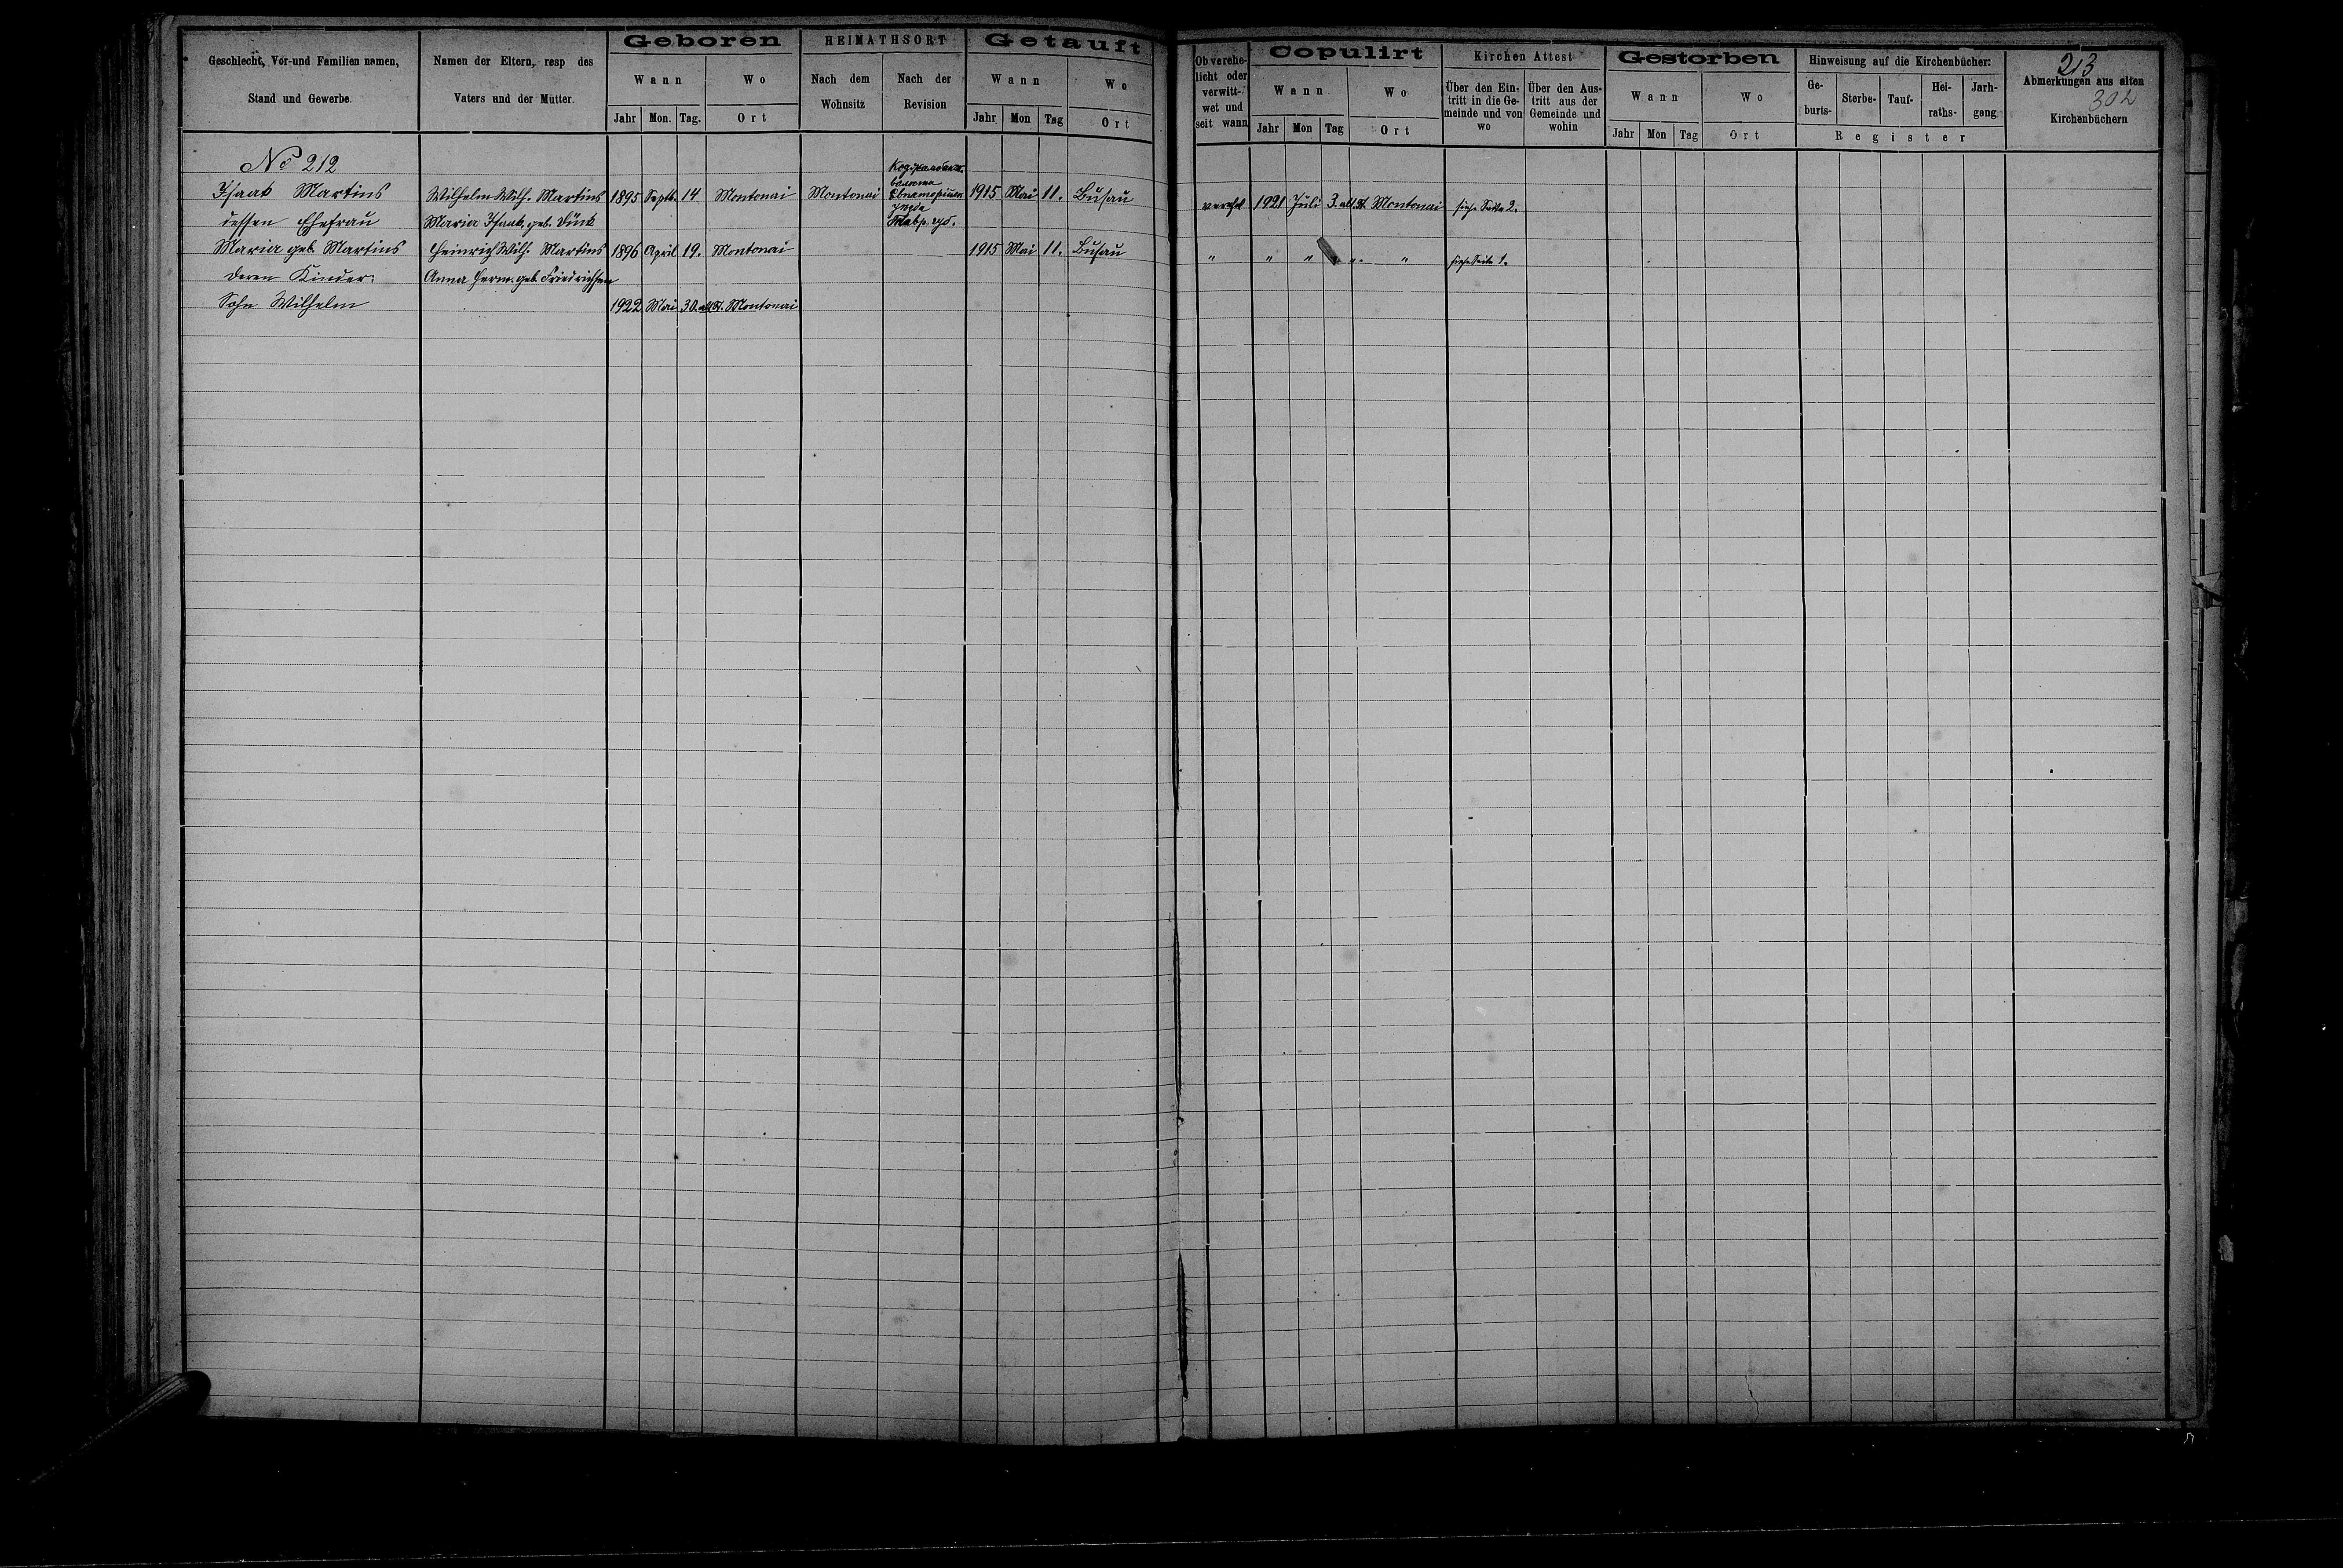 Geschlecht, Vor-und Familien namen, Stand und Gewerbe.
Namen der Eltern, resp des Vaters und der Mutter.
Geboren
Wann
Wo
Jahr Mon. Tag. Ort
HEIMATHSORT
Nach dem Wohnsitz
Nach der Revision
Getauft
Wann
Wo
Jahr Mon Tag Ort
Ob verehelicht oder verwittwet und seit wann
Copulirt
Wann
Wo
Jahr Mon Tag Ort
Kirchen Attest
Über den Eintritt in die Gemeinde und von wo
Über den Austritt aus der Gemeinde und wohin
Gestorben
Wann
Wo
Jahr Mon Tag Ort
Hinweisung auf die Kirchenbücher:
Geburts- Sterbe- Tauf- Heiraths- Jarhgang
Register
213
Abmerkungen aus alten
302
Kirchenbüchern
No 212
Isaak Martins Wilhelm Wilh. Martins 1895 Septb. 14 Montonai Montonai Евпаторійск. уѣзда Тавр. губ. 1915 Mai 11. Busau vereh 1921 Juli 3. alt. St. Montonai siehe Seite 2.
dessen Ehefrau Maria Isaak, geb. Dück
Maria geb. Martins Heinrich Wilh. Martins 1896 April 19. Montonai 1915 Mai 11. Busau " " " " " " siehe Seite 1.
deren Kinder: Anna Herm. geb. Friedrichsen
Sohn Wilhelm 1922 Mai 30. alt. St. Montonai